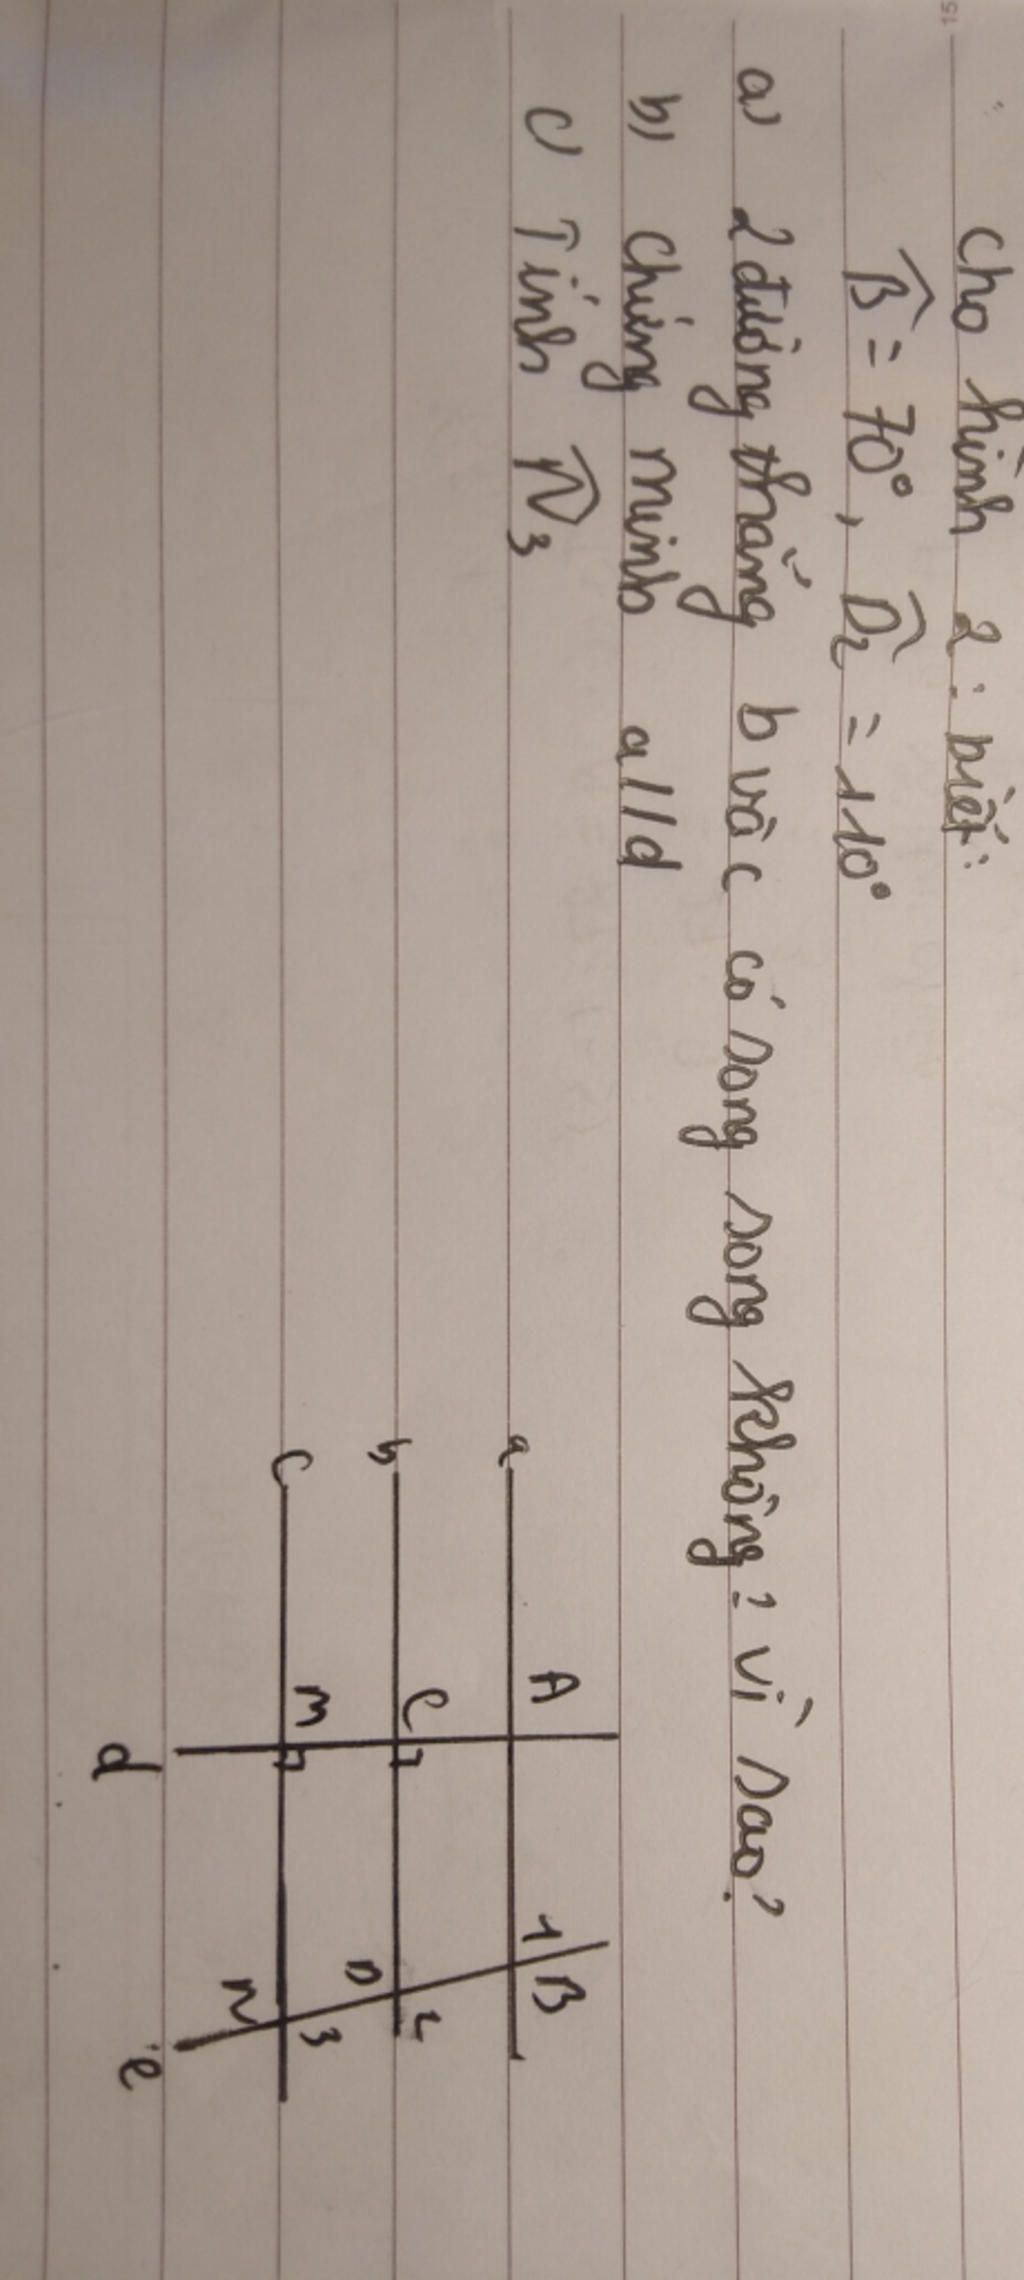 Cho hình 2: biết:
B̂ = 70°, D̂₂ = 110°
a) 2 đường thẳng b và c có song song không? vì sao?
b) Chứng minh a//d
c) Tính N̂₃
a A 1 B
b C D 2
c M N 3
d e
15